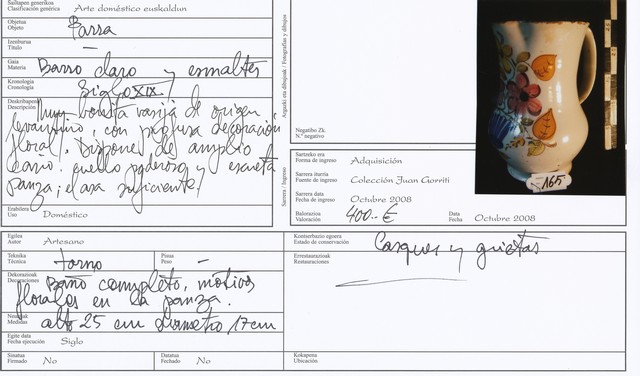 Sailtapen generikoa
Clasificación genérica
Arte doméstico euskaldun
Objetua
Objeto
Parra
Izenburua
Título
—
Gaia
Materia
Barro claro y esmaltes
Kronologia
Cronología
Siglo XIX.
Deskribapena
Descripción
Muy bonita vasija de origen
levantino, con profusa decoración
floral. Dispone de amplio
caño. cuello poderoso y escueta
panza; el asa suficiente.
Erabilera
Uso
Doméstico
Argazki eta dibujoak / Fotografías y dibujos
Negatibo Zk.
N.º negativo
165
Sarrera / Ingreso
Sartzeko era
Forma de ingreso
Adquisición
Sarrera iturria
Fuente de ingreso
Colección Juan Gorriti
Sarrera data
Fecha de ingreso
Octubre 2008
Balorazioa
Valoración
400.- €
Data
Fecha
Octubre 2008
Egilea
Autor
Artesano
Teknika
Técnica
torno
Pisua
Peso
—
Dekorazioak
Decoraciones
Baño completo, motivos
florales en la panza.
Neurriak
Medidas
alto 25 cm Diametro 17 cm
Egite data
Fecha ejecución
Siglo
Sinatua
Firmado
No
Datatua
Fechado
No
Kontserbazio egoera
Estado de conservación
Casques y grietas
Errestaurazioak
Restauraciones
Kokapena
Ubicación